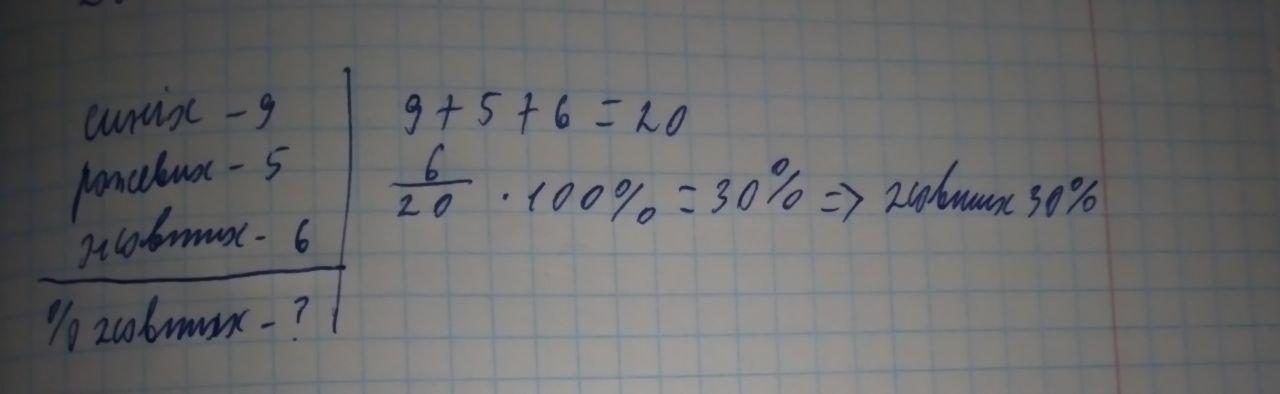 синіх - 9
рожевих - 5
жовтих - 6
% жовтих - ?
9 + 5 + 6 = 20
6/20 · 100% = 30% => жовтих 30%